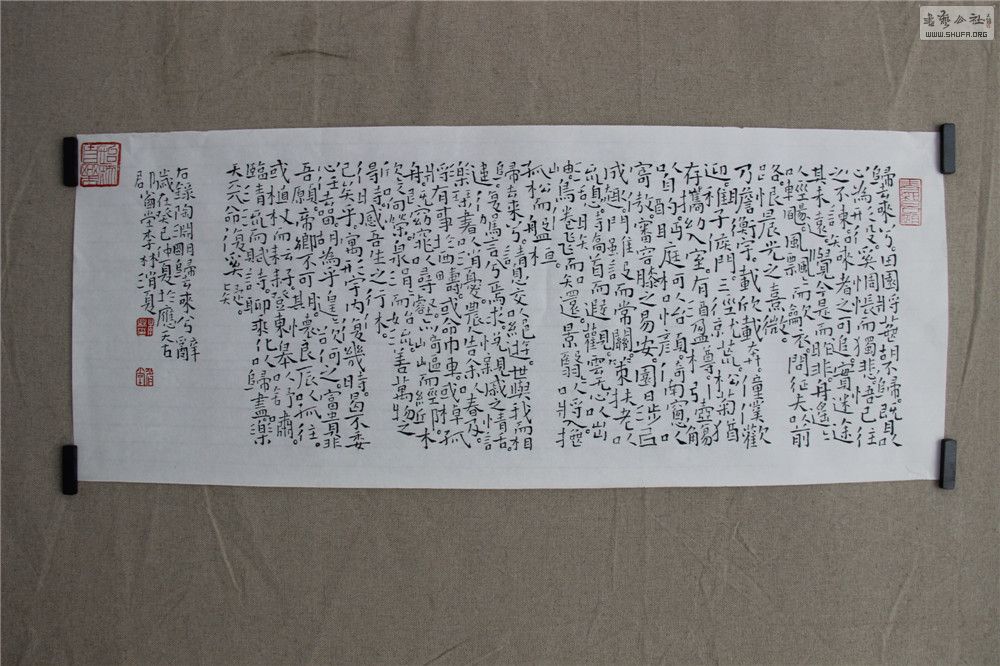 歸去來兮。田園將蕪胡不歸。既自以
心為形役。奚惆悵而獨悲。悟已往
之不諫。知來者之可追。實迷途
其未遠。覺今是而昨非。舟遙遙
以輕颺。風飄飄而吹衣。問征夫以前
路。恨晨光之熹微。
乃瞻衡宇。載欣載奔。僮僕歡
迎。稚子候門。三徑就荒。松菊猶
存。攜幼入室。有酒盈樽。引壺觴
以自酌。眄庭柯以怡顏。倚南窗以
寄傲。審容膝之易安。園日涉以
成趣。門雖設而常關。策扶老以
流憩。時矯首而遐觀。雲無心以出
岫。鳥倦飛而知還。景翳翳以將入。撫
孤松而盤桓。
歸去來兮。請息交以絕遊。世與我而相
違。復駕言兮焉求。悅親戚之情話。
樂琴書以消憂。農人告余以春及。
將有事於西疇。或命巾車。或棹孤
舟。既窈窕以尋壑。亦崎嶇而經丘。木
欣欣以向榮。泉涓涓而始流。善萬物之
得時。感吾生之行休。
已矣乎。寓形宇內復幾時。曷不委
心任去留。胡為乎遑遑欲何之。富貴非
吾願。帝鄉不可期。懷良辰以孤往。
或植杖而耘耔。登東皋以舒嘯。
臨清流而賦詩。聊乘化以歸盡。樂
夫天命復奚疑。
右錄陶淵明歸去來兮辭
歲在癸巳仲夏於應天古
李林消夏
書藝公社
WWW.SHUFA.ORG